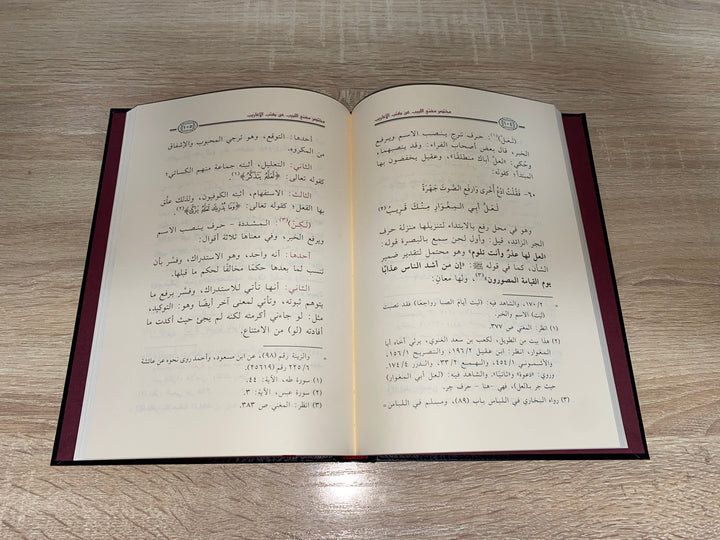 مختصر مغني اللبيب عن كتب الأعاريب
١٠٤
(لعل)(١): حرف تدرج ينصب الاسم ويرفع
الخبر، قال بعض أصحاب الفراء: وقد ينصبهما،
وحُكي: لعل أباك منطلقًا، وعقيل يخفضون بها
المبتدأ؛ كقوله:
٦٠- فَقُلْتُ ادْعُ أُخْرَى وَارْفَعِ الصَّوْتَ جَهْرَةً
لَعَلَّ أَبِي الْمِغْوَارِ مِنْكَ قَرِيبُ(٢)
وهو في محل رفع بالابتداء، لتنزيلها منزلة حرف
الجر الزائد، قيل: وأول لحن سمع بالبصرة قولهم:
لعل لها عذرٌ وأنت تلوم، وهو محتمل لتقدير ضمير
الشأن، كما في قوله ﷺ: «إن من أشد الناس عذابًا
يوم القيامة المصورون»(٣)، ولها معانٍ:
٢/ ١٧٠، والشاهد فيه: (ليت أيام الصبا رواجعًا) فقد نصبت
(ليت) الاسم والخبر.
(١) انظر: المغني ص ٣٧٧.
(٢) هذا بيت من الطويل، لكعب بن سعد الغنوي، يرثي أخاه أبا
المغوار، انظر: ابن عقيل ١٩٦/٢، والتصريح ١٥٦/١،
والأشموني ٤٥٤/١، والهمع ٣٣/٢، والدرر ١٧٤/٤،
وروي: «دعوة» و«ثانيًا»، والشاهد فيه: (لعل أبي المغوار)
حيث جر بـ(لعل)، فهي -هنا- حرف جر.
(٣) رواه البخاري في اللباس باب (٨٩)، ومسلم في اللباس =
مختصر مغني اللبيب عن كتب الأعاريب
١٠٥
أحدها: التوقع، وهو ترجي المحبوب والإشفاق
من المكروه.
الثاني: التعليل، أثبته جماعة منهم الكسائي؛
كقوله تعالى: ﴿لَعَلَّهُ يَتَذَكَّرُ﴾(١).
الثالث: الاستفهام، أثبته الكوفيون، ولذلك علّق
بها الفعل؛ كقوله تعالى: ﴿وَمَا يُدْرِيكَ لَعَلَّهُ يَزَّكَّى﴾(٢).
(لكنّ)(٣): المشددة - حرف ينصب الاسم
ويرفع الخبر، وفي معناها ثلاثة أقوال:
أحدها: أنه واحد، وهو الاستدراك، وفسّر بأن
تنسب لما بعدها حكمًا مخالفًا لحكم ما قبلها.
الثاني: أنها تأتي للاستدراك، وفسر برفع ما
يتوهم ثبوته، وتأتي لمعنى آخر أيضًا وهو: التوكيد،
مثل: لو جاءني أكرمته لكنه لم يجئ حيث أكدت ما
أفادته (لو) من الامتناع.
= والزينة رقم (٩٨)، عن ابن مسعود، وأحمد روى نحوه عن عائشة
٢٢٥/٦ رقم (٢٥٦١٩).
(١) سورة طه، الآية: ٤٤.
(٢) سورة عبس، الآية: ٣.
(٣) انظر: المغني ص ٣٨٣.